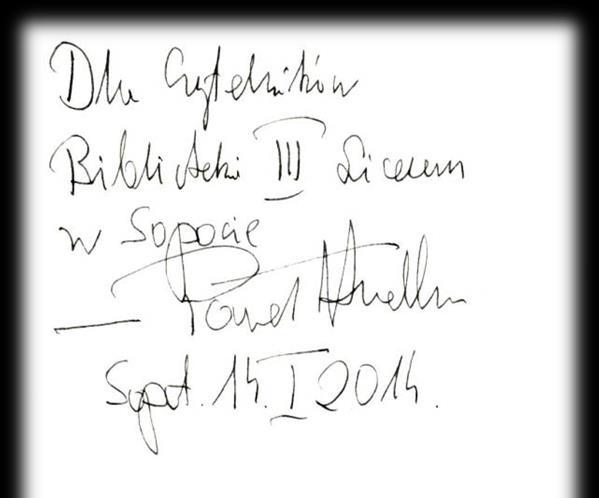 Dla Czytelników
Biblioteki III Liceum
w Sopocie
— Paweł Huelle
Sopot. 14. I 2014.